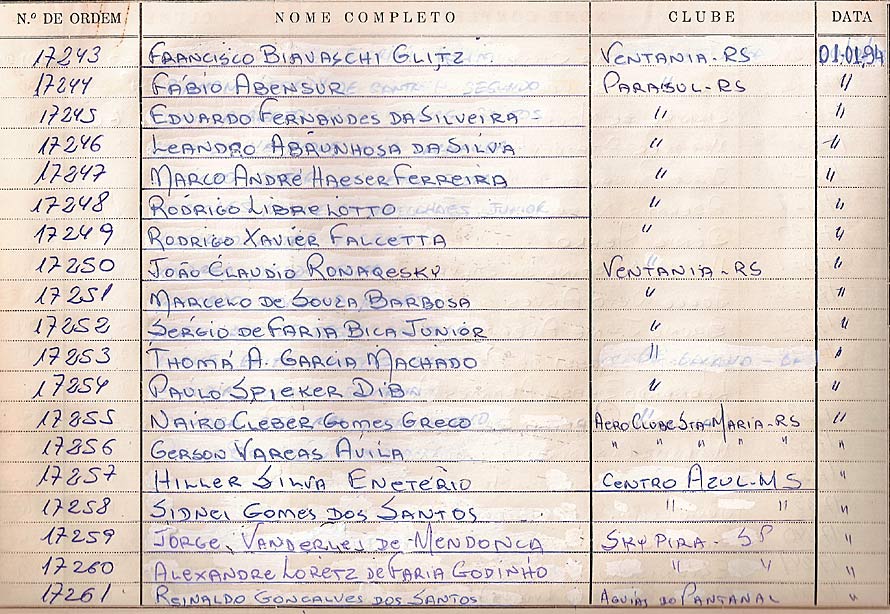 N.º DE ORDEM NOME COMPLETO CLUBE DATA
17243 FRANCISCO BIAVASCHI GLITZ VENTANIA-RS 01.01.94
17244 FÁBIO ABENSUR PARASUL-RS "
17245 EDUARDO FERNANDES DA SILVEIRA " "
17246 LEANDRO ABAUNHOSA DA SILVA " "
17247 MARCO ANDRÉ HAESER FERREIRA " "
17248 RODRIGO LIBRELOTTO " "
17249 RODRIGO XAVIER FALCETTA " "
17250 JOÃO CLAUDIO RONAQESKY VENTANIA-RS "
17251 MARCELO DE SOUZA BARBOSA " "
17252 SÉRGIO DE FARIA BICA JUNIOR " "
17253 THOMÁ A. GARCIA MACHADO " "
17254 PAULO SPIEKER DIB " "
17255 NAIRO CLEBER GOMES GRECO AEROCLUBE STA-MARIA-RS "
17256 GERSON VARGAS ÁVILA " " " " " "
17257 HILLER SILVA ENETÉRIO CENTRO AZUL-MS "
17258 SIDNEI GOMES DOS SANTOS " " "
17259 JORGE VANDERLEI DE MENDONCA SKYPIRA-SP "
17260 ALEXANDRE LORETZ DE FARIA GODINHO " " "
17261 REINALDO GONCALVES DOS SANTOS AGUIAS DO PANTANAL "